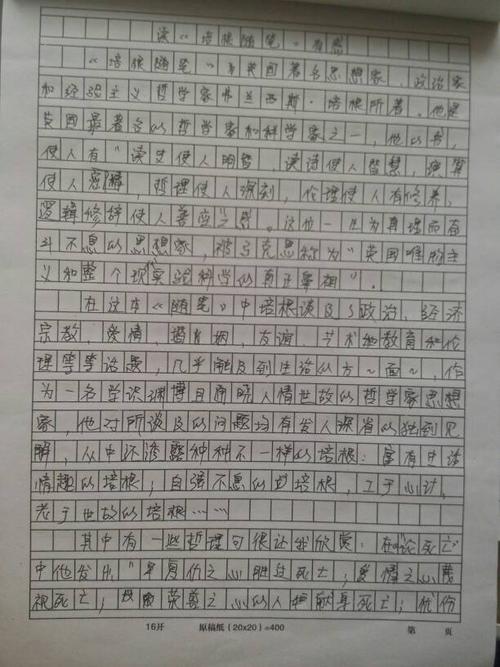 读《培根随笔》有感
《培根随笔》为英国著名思想家、政治家
和经验主义哲学家弗兰西斯·培根所著。他是
英国最著名的哲学家和科学家之一，他的书，
使人有"读史使人明智，读诗使人智慧，演算
使人密，哲理使人深刻，伦理使人有修养，
逻辑修辞使人善应之感。这位一生为真理而奋
斗不息的思想家，被马克思称为"英国唯的主
义和整个现实验科学的真正鼻祖"。
在这本《随笔》中培根谈及了政治，经济
宗教，爱情，婚姻，友谊，艺术和教育和伦
理等等话题，几乎触及到生活的方～面～，作
为一名学识渊博且通晓人情世故的哲学家思想
家，他对所谈及的问题均有发人深省的独到见
解，从中还透露种种不一样的培根：富有生活
情趣的培根；自强不息的培根，工于心计，
老于世故的培根……
其中有一些哲理句很让我欣赏：在"论死亡"
中他发出"复仇之心胜过死亡；爱情之心蔑
视死亡；荣尊之心的人献身死亡；忧伤
16开 原稿纸(20x20)=400 第 页